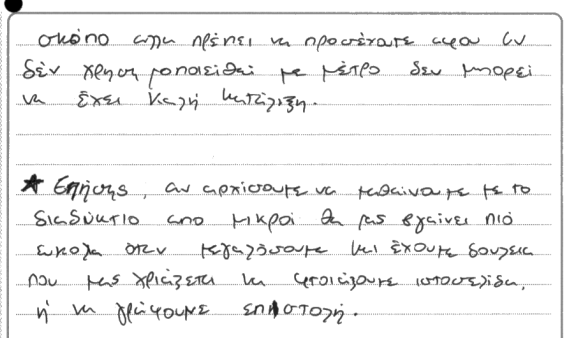 σκόπο αλλα πρέπει να προσέχουμε αφου αν
δέν χρησημοποιειθεί με μέτρο δεν μπορεί
να έχει καλή κατάληξη.
★ Επήσης, αν αρχίσουμε να μαθαίνουμε με το
διαδύκτιο απο μικροί θα μας βγαίνει πιό
ευκολα όταν μεγαλόσουμε και έχουμε δουλεια
που μας χριάζεται να φτοιάξουμε ιστοσελίδα,
ή να γράψουμε επηστολή.